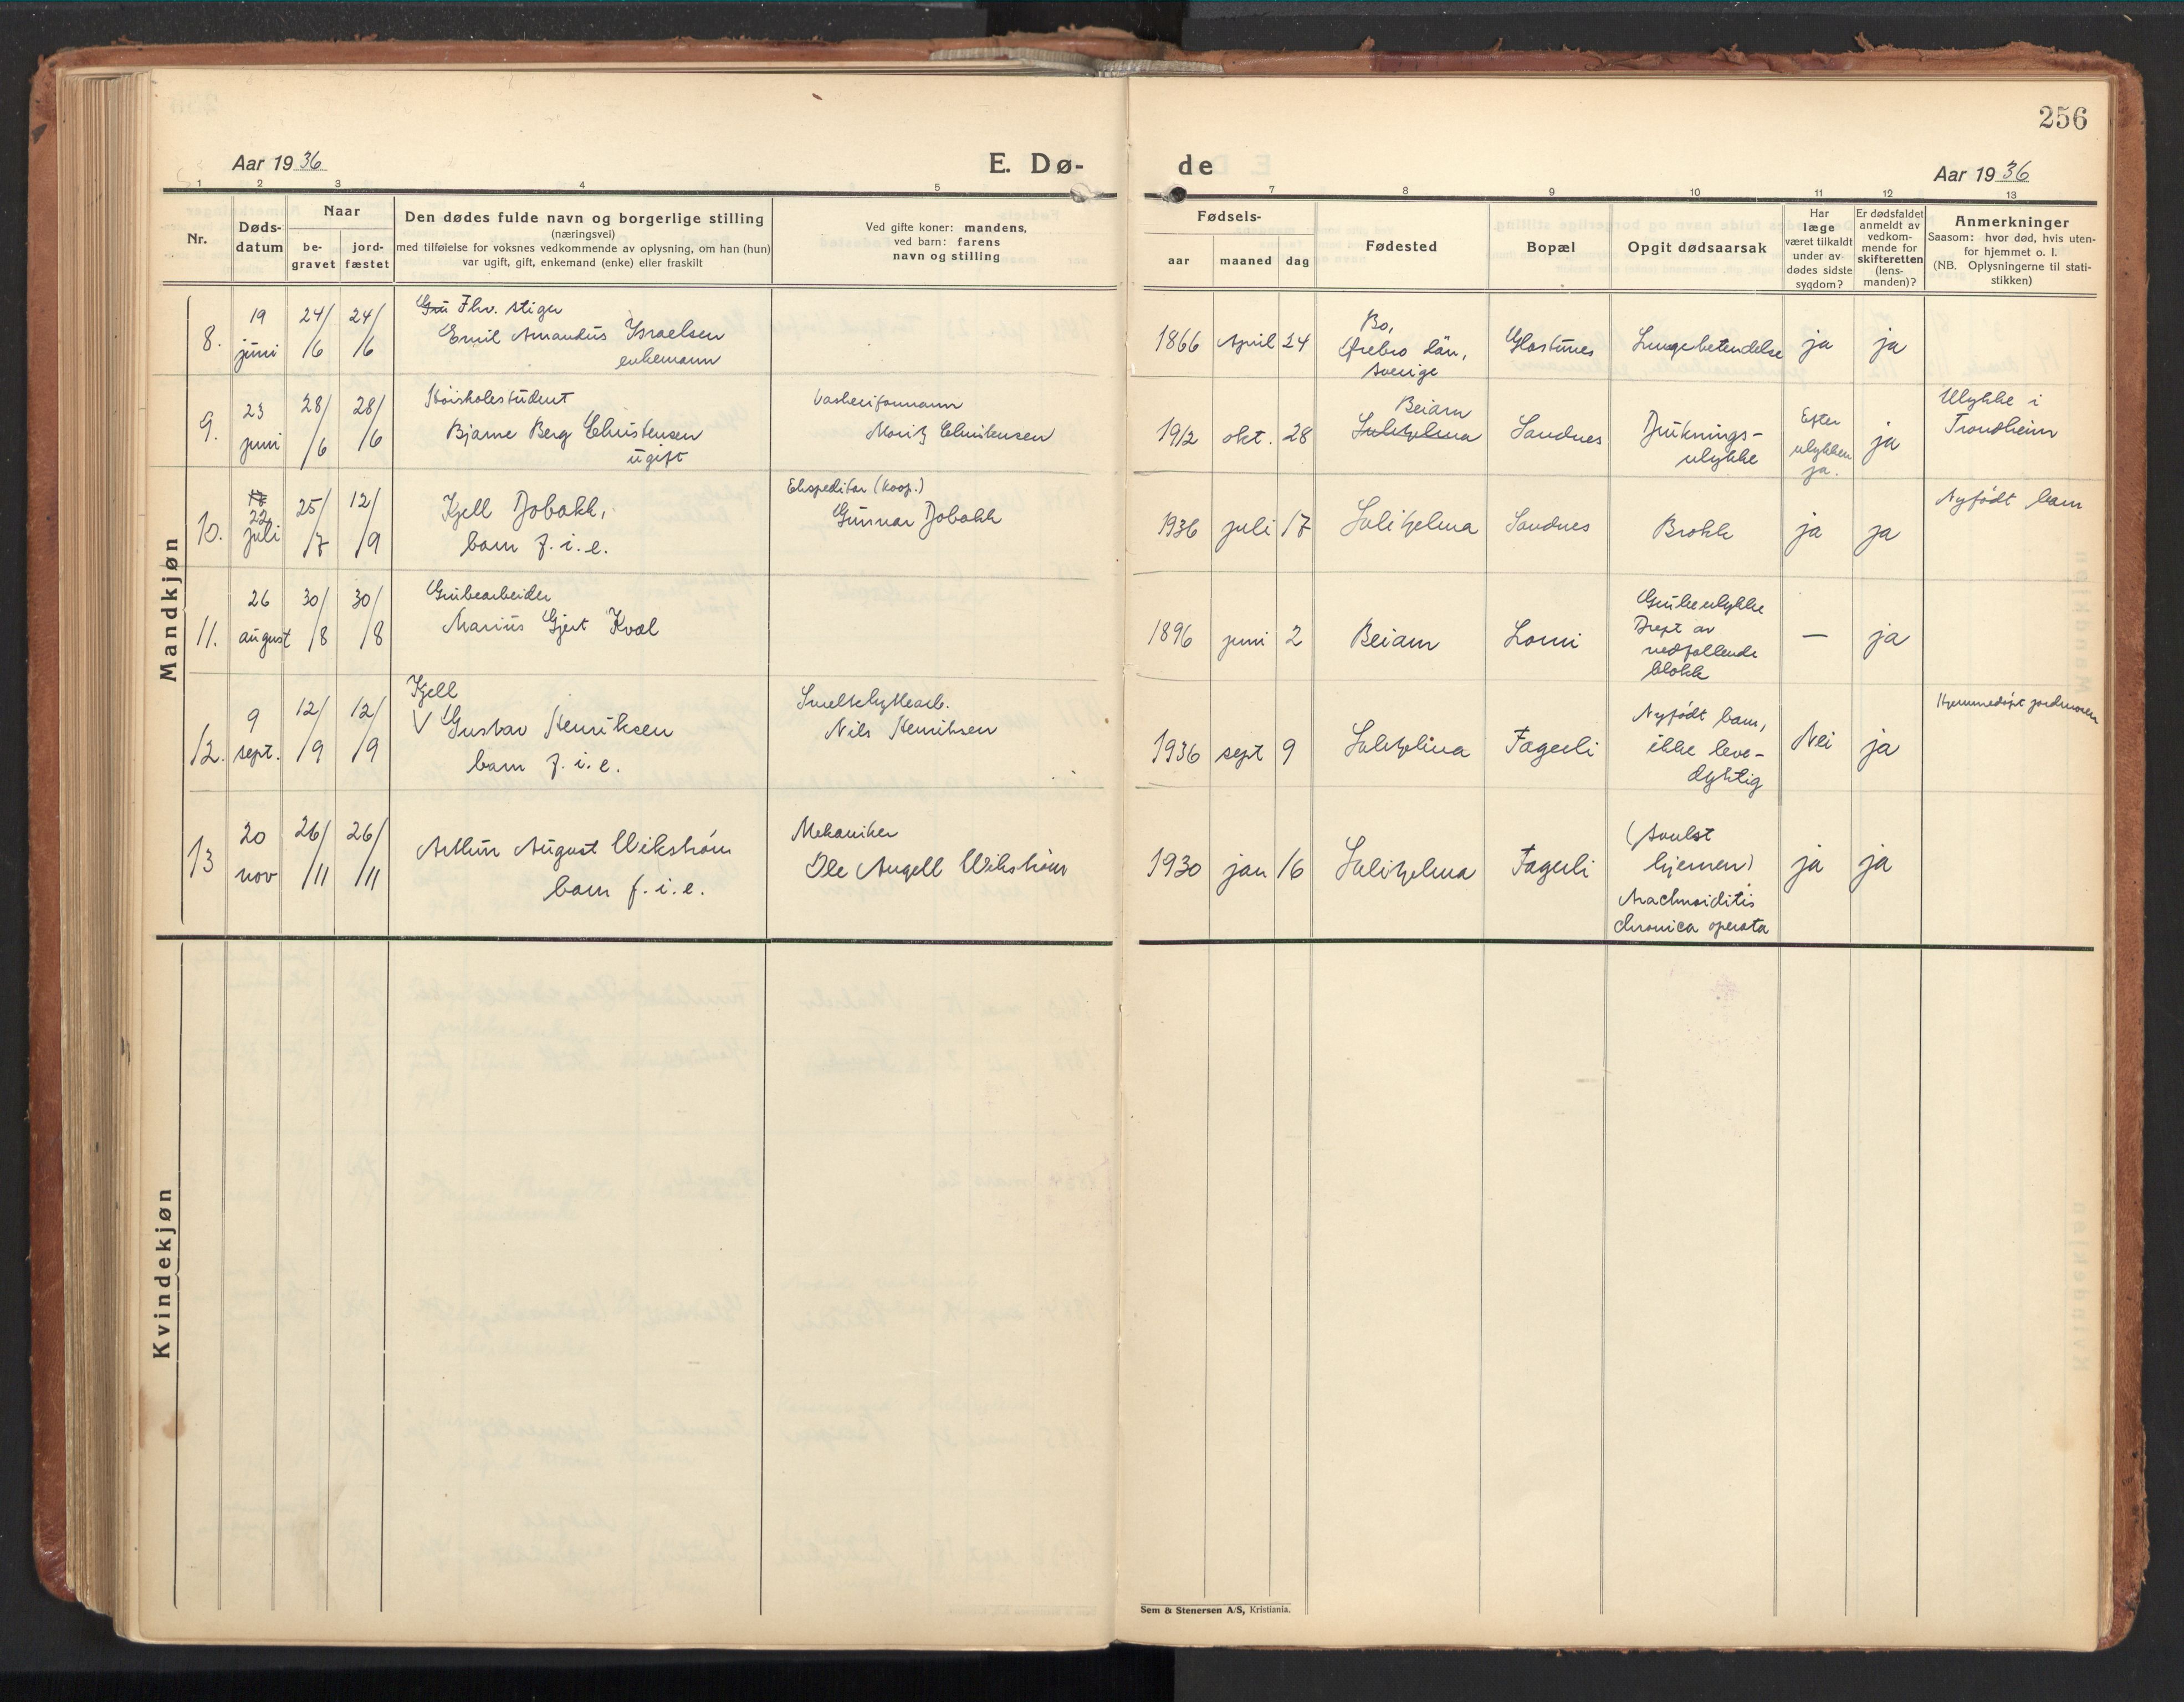 256
Aar 1936
E. Dø-
de
Aar 1936
1 2 3 4 5 7 8 9 10 11 12 13
Nr.
Døds-
datum
Naar
be-
gravet
jord-
fæstet
Den dødes fulde navn og borgerlige stilling
(næringsvei)
med tilføielse for voksnes vedkommende av oplysning, om han (hun)
var ugift, gift, enkemand (enke) eller fraskilt
Ved gifte koner: mandens,
ved barn: farens
navn og stilling
Fødsels-
aar
maaned
dag
Fødested
Bopæl
Opgit dødsaarsak
Har
læge
været tilkaldt
under av
dødes sidste
sygdom?
Er dødsfaldet
anmeldt av
vedkom-
mende for
skifteretten
(lens-
manden)?
Anmerkninger
Saasom: hvor død, hvis uten-
for hjemmet o. l.
(NB. Oplysningerne til stati-
stikken)
Mandkjøn
8.
19
juni
24/
/6
24/
/6
Fhv. stiger
Emil Amandus Israelsen
enkemann
1866 April 24
Bo,
Ørebro län,
Sverige
Glastunes
Lungebetendelse
ja
ja
9.
23
juni
28/
/6
28/
/6
Höiskolestudent
Bjarne Berg Christensen
ugift
Vaskeriformann
Moritz Christensen
1912 okt. 28
Beiarn
Sulitjelma
Sandnes
Druknings-
ulykke
Efter
ulykken
ja.
ja
Ulykke i
Trondheim
10.
22
juli
25/
/7
12/
/9
Kjell Dobakk,
barn f. i. e.
Ekspeditør (koop.)
Gunnar Dobakk
1936 juli 17
Sulitjelma
Sandnes
Brokk
ja
ja
Nyfödt barn
11.
26
august
30/
/8
30/
/8
Grubearbeider
Marius Gjert Kval
1896 juni 2
Beiarn
Lomi
Grubeulykke
Drept av
nedfallende
blokk
—
ja
12.
9
sept.
12/
/9
12/
/9
Kjell
V Gustav Henriksen
barn f. i. e.
Smeltehyttearb.
Nils Henriksen
1936 sept 9
Sulitjelma
Fagerli
Nyfödt barn,
ikke leve-
dyktig
Nei
ja
Hjemmedöpt jordmoren
13
20
nov
26/
/11
26/
/11
Arthur August Wikström
barn f. i. e.
Mekaniker
Ole Angell Wikström
1930 jan 16
Sulitjelma
Fagerli
(Svulst
hjernen)
Arachnoiditis
chronica operata
ja
ja
Kvindekjøn
Sem & Stenersen A/S, Kristiania.